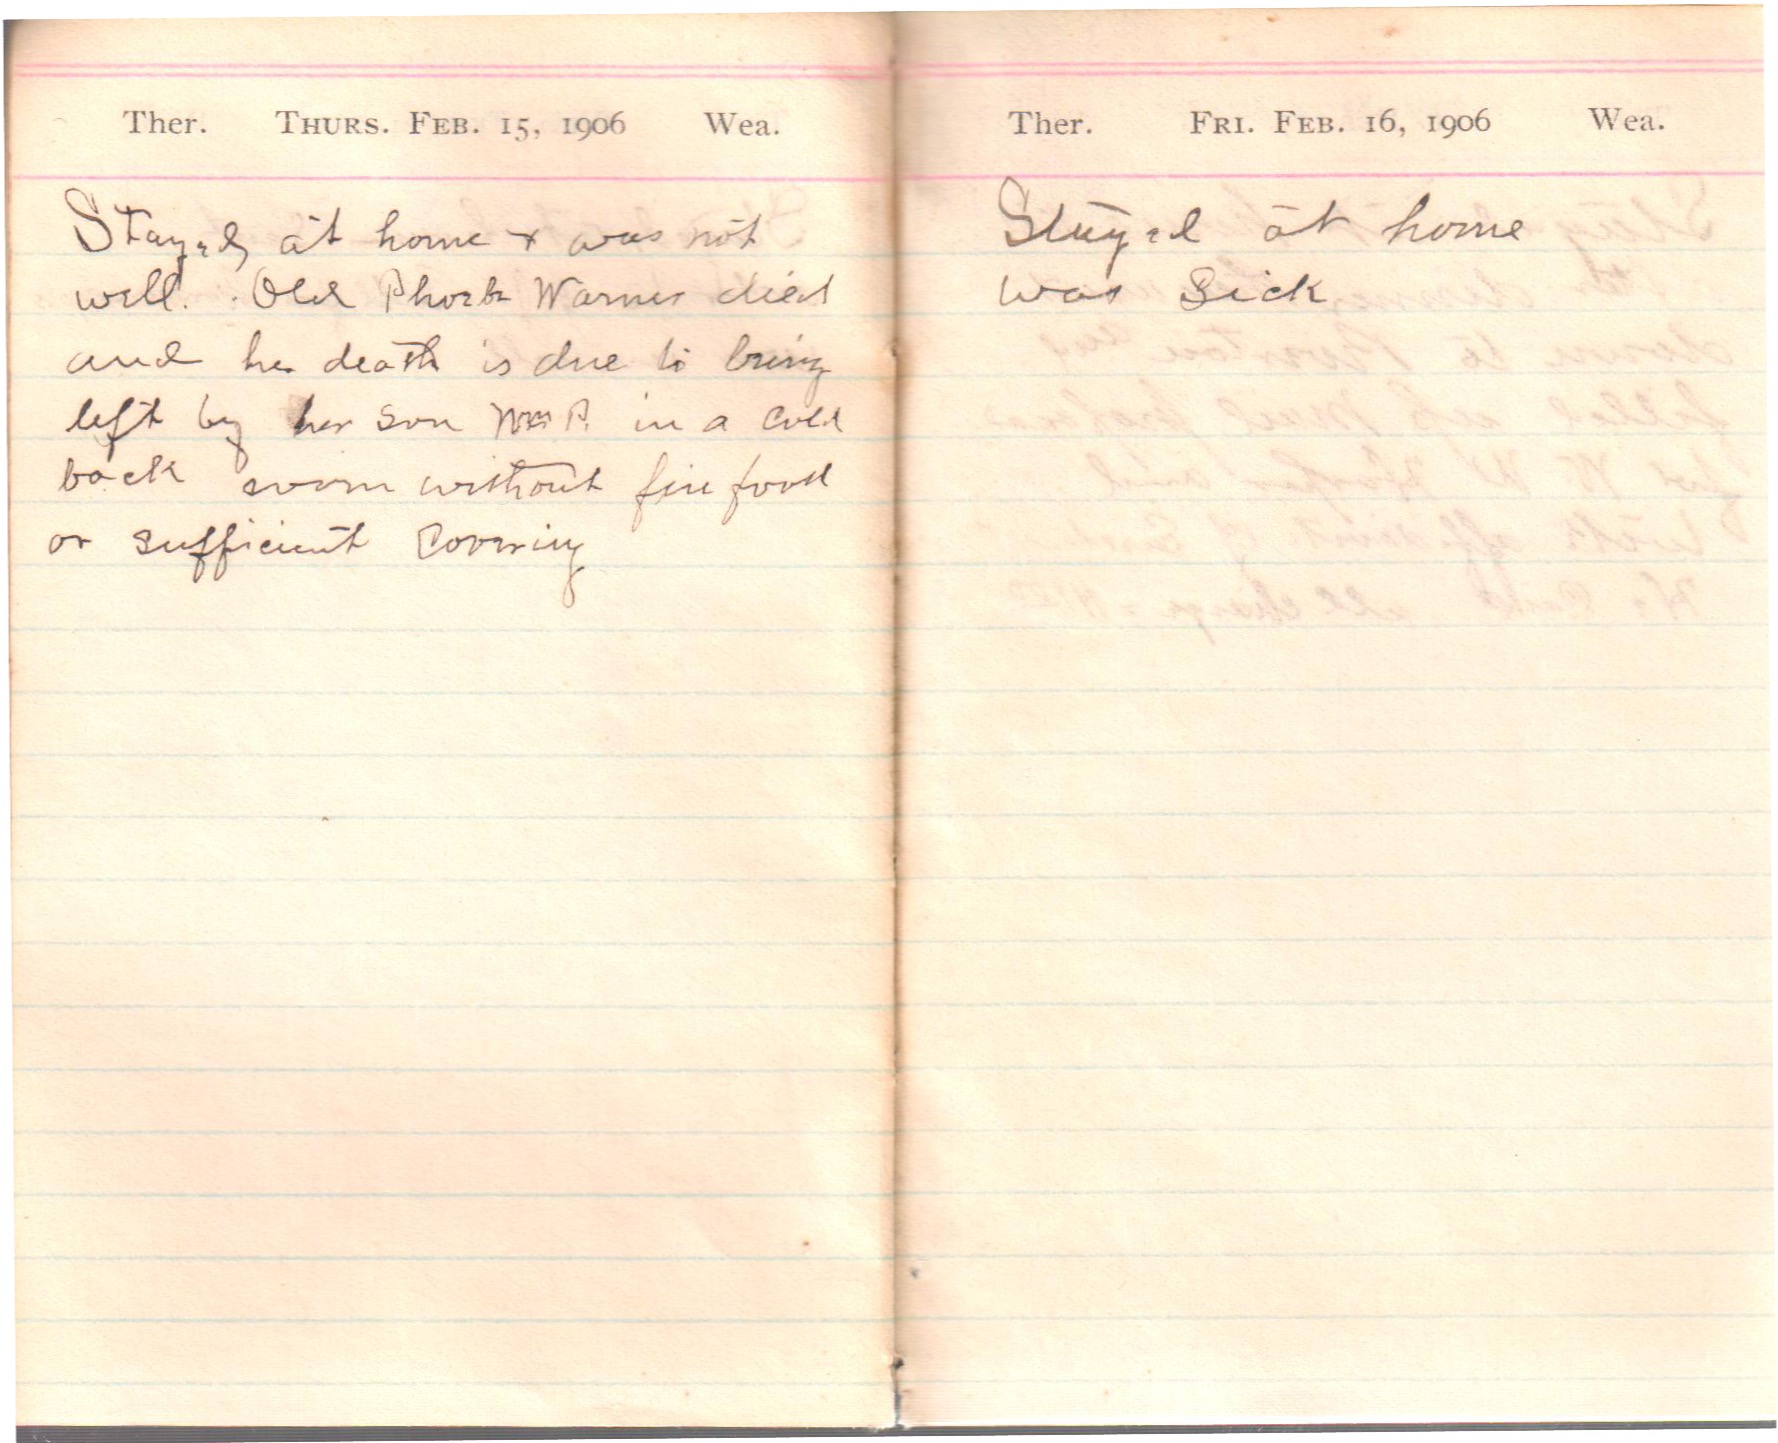 Ther. THURS. FEB. 15, 1906 Wea.
Stayed at home + was not
well. Old Phoebe Warner died
and her death is due to being
left by her son Wm P. in a cold
back room without fire food
or sufficient covering
Ther. FRI. FEB. 16, 1906 Wea.
Stayed at home
was sick